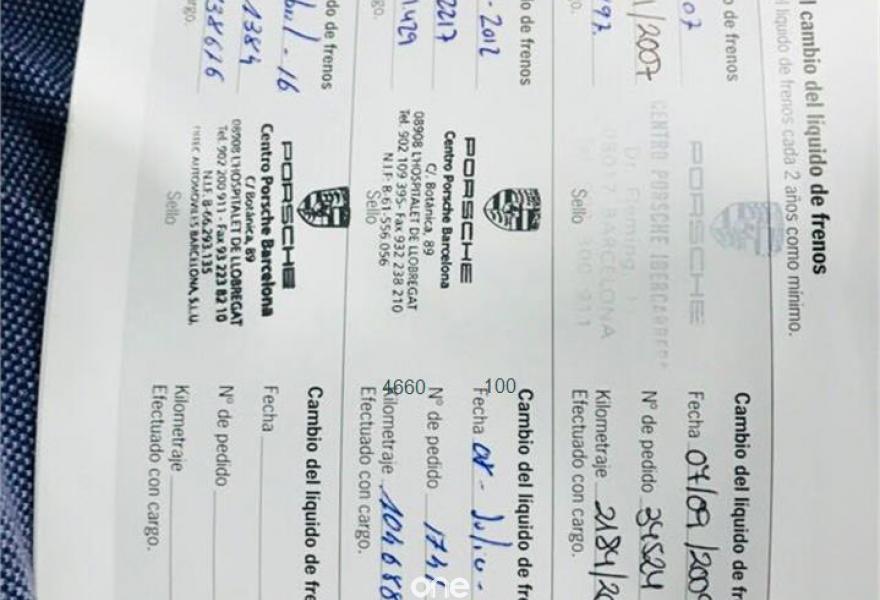 l cambio del líquido de frenos
l líquido de frenos cada 2 años como mínimo.
o de frenos
07
1/2007
97
PORSCHE
CENTRO PORSCHE IBERCARRERA
Dr. Fleming,
08017 BARCELONA
300 911
Sello
Cambio del líquido de fr
Fecha 07/09/200
Nº de pedido 24524
Kilometraje 2184/20
Efectuado con cargo.
do de frenos
- 2012
2217
1429
go.
PORSCHE
Centro Porsche Barcelona
C/. Botánica, 89
08908 L'HOSPITALET DE LLOBREGAT
Tel. 902 109 395- Fax 932 238 210
N.I.F: B-61-556.056
Sello
Cambio del líquido de fre
Fecha 08 - Julio -
100
Nº de pedido 174
Kilometraje 104688
4660
Efectuado con cargo.
do de frenos
- 16
1384
38616
argo.
PORSCHE
Centro Porsche Barcelona
C/ Botànica, 89
08908 L'HOSPITALET DE LLOBREGAT
Tel. 902 200 911 - Fax 93 223 82 10
N.I.F. B-66.293.135
AUTOMOVILES BARCELONA, S.L.U.
Sello
Cambio del líquido de fre
Fecha
Nº de pedido
Kilometraje
Efectuado con cargo.
one